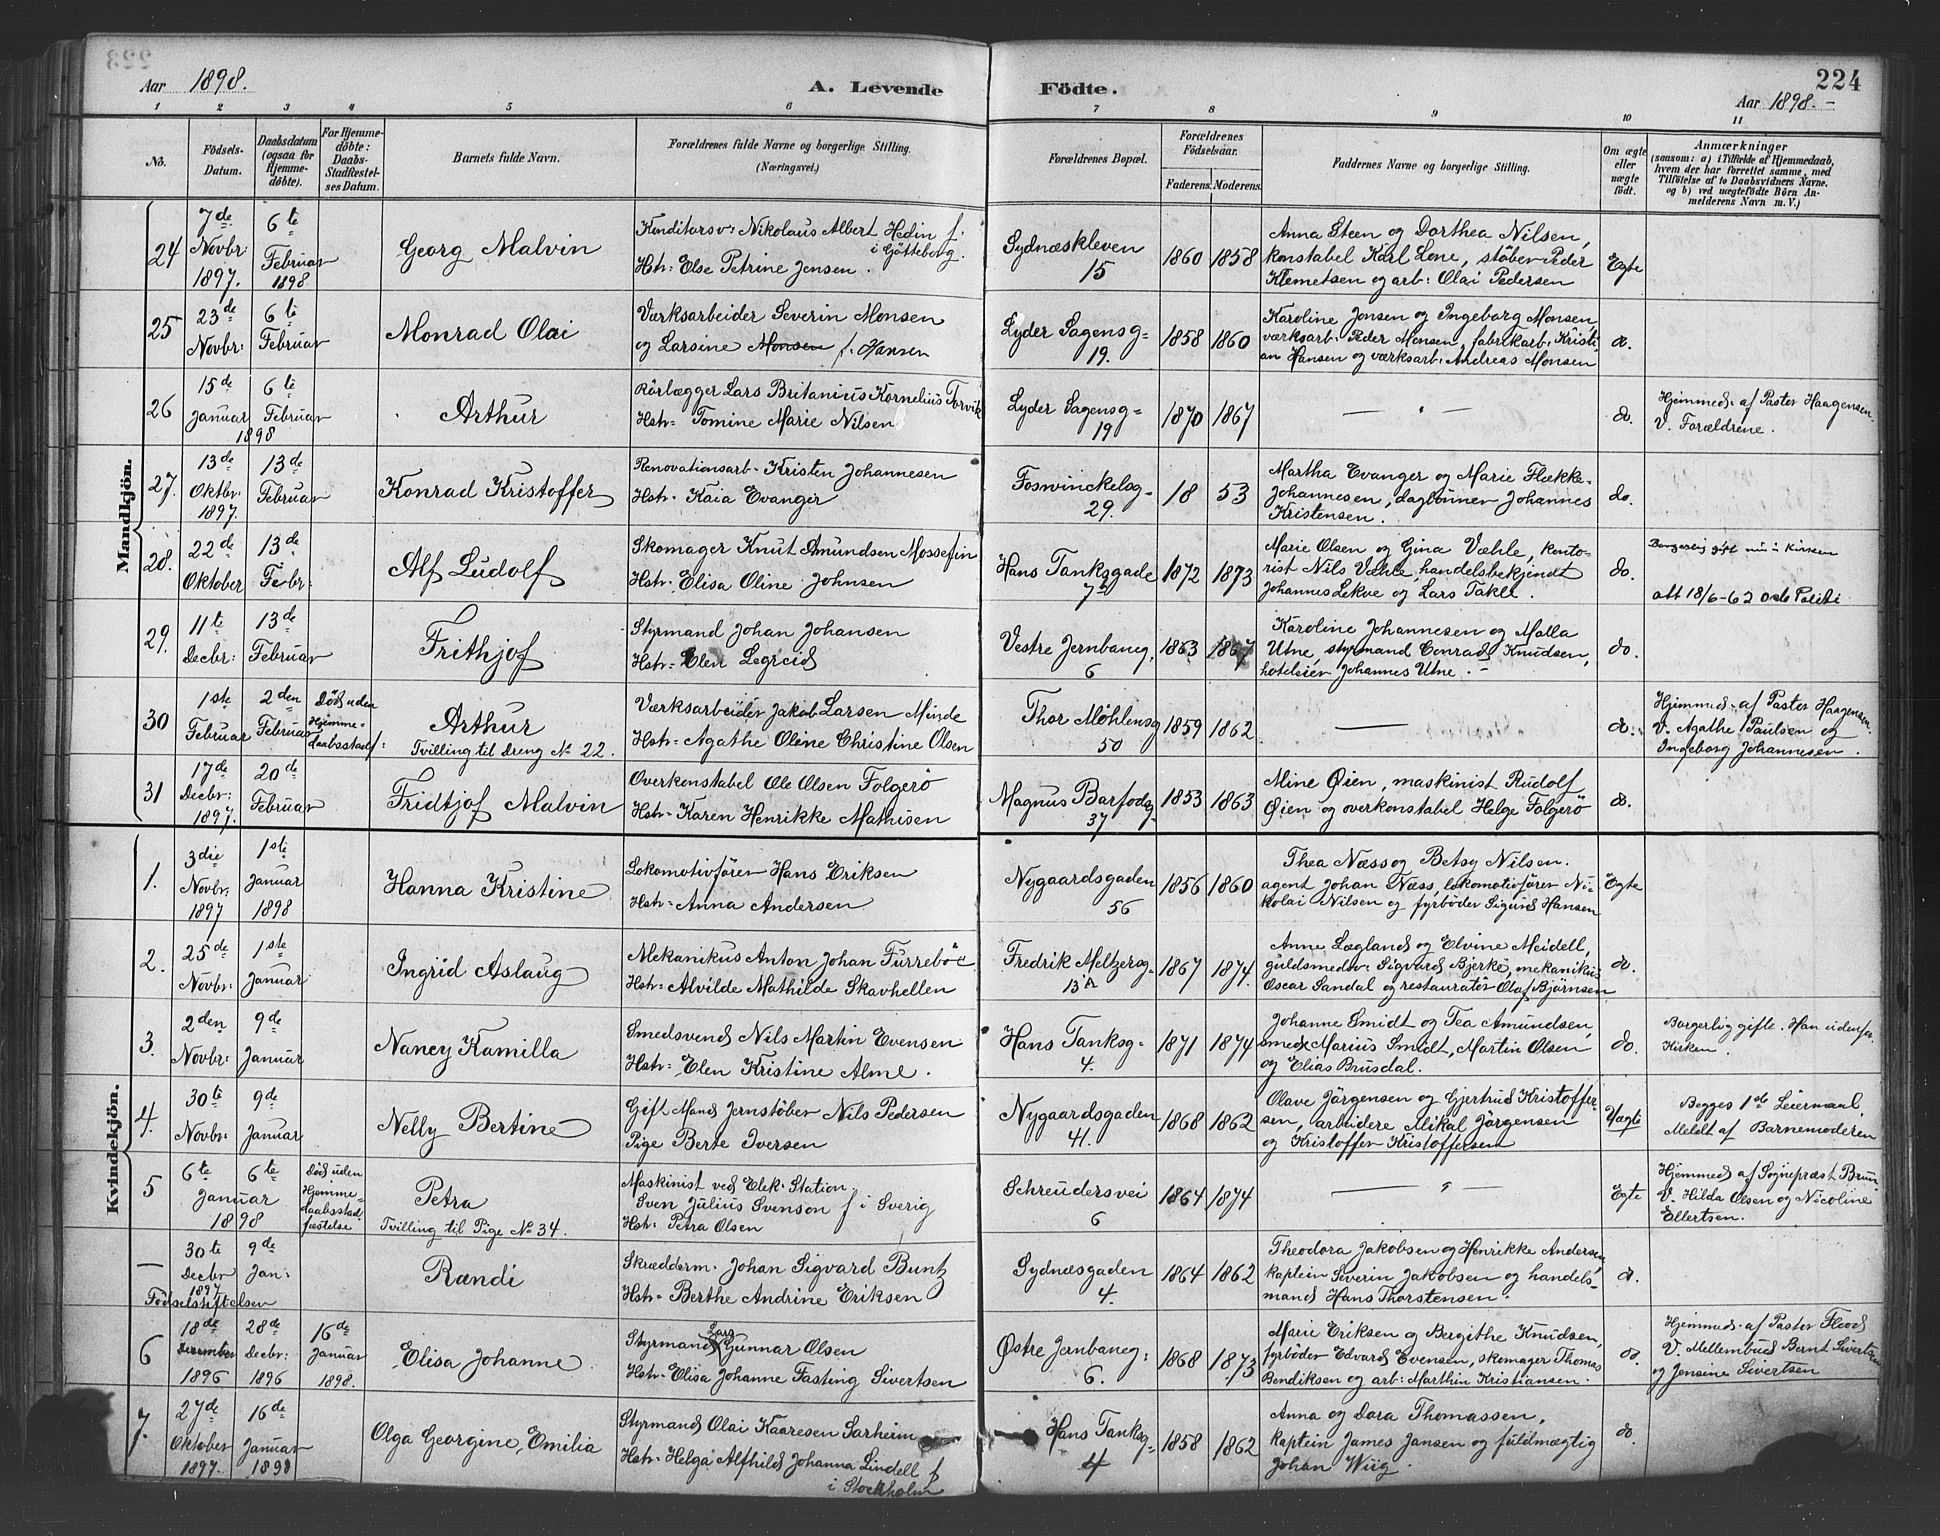 Aar 1898.
A. Levende Födte.
224
Aar 1898. –
1 2 3 4 5 6 7 8 9 10 11
No.
Födsels-
Datum.
Daabsdatum
(ogsaa for
Hjemme-
døbte).
For Hjemme-
døbte:
Daabs-
Stadfæstel-
ses Datum.
Barnets fulde Navn.
Forældrenes fulde Navne og borgerlige Stilling.
(Næringsvei.)
Forældrenes Bopæl.
Forældrenes
Födselsaar.
Faderens. Moderens.
Faddernes Navne og borgerlige Stilling.
Om ægte
eller
uægte
født.
Anmærkninger
(saasom: a) i Tilfælde af Hjemmedaab,
hvem der har forrettet samme, med
Tilföielse af to Daabsvidners Navne.
og b) ved uægtefödte Börn An-
melderens Navn m. V.)
Mandkjön.
24
7de
Novbr:
1897.
6te
Februar
1898
Georg Malvin
Konditorsv: Nikolaus Albert Hedin f.
i Gøtteborg.
Hstr: Else Petrine Jensen.
Sydnæskleven
15
1860 1858
Anna Steen og Dorthea Nilsen,
konstabel Karl Lone, støber Peder
Klemetsen og arb: Olai Pedersen
Egte
25
23de
Novbr:
6te
Februar
Monrad Olai
Værksarbeider Severin Monsen
og Larsine Monsen f. Hansen
Lyder Sagensg-
19.
1858 1860
Karoline Jensen og Ingeborg Monsen,
værksarb: Peder Monsen, fabrikarb: Kristi-
an Hansen og værksarb: Andreas Monsen
do.
26
15de
Januar
6te
Februar
1898
Arthur
Rörlægger Lars Britanius Kornelius Torvik
Hstr: Tomine Marie Nilsen
Lyder Sagensg-
19
1870 1867
— " —
do.
Hjemmed: af Pastor Haagensen.
V. Forældrene.
27.
13de
Oktbr:
1897.
13de
Februar
Konrad Kristoffer
Renovationsarb. Kristen Johannesen
Hstr. Kaia Evanger
Foswinckelsg-
29.
18 53
Martha Evanger og Marie Flække-
Johannesen, daglönner Johannes
Kristensen.
do.
28.
22de
Oktober
13de
Febr:
Alf Ludolf
Skomager Knut Amundsen Mossefin
Hstr. Elisa Oline Johnsen
Hans Tanksgade
7
1872 1873
Marie Olsen og Gina Væhle, konto-
rist Nils Væhle, handelsbekjendt
Johannes Lekve og Lars Takle.
do.
Borgerlig gift nu i Kirken
att 18/6-62 Oslo Politi
29.
11te
Decbr:
13de
Februar
Frithjof
Styrmand Johan Johansen
Hstr: Elen Legreid
Vestre Jernbaneg.
6
1863 1867
Karoline Johannesen og Malla
Utne, styrmand Conrad Knudsen,
hoteleier Johannes Utne. –
do.
30
1ste
Februar
2den
Februar
Död uden
Hjemme-
daabsstadf:
Arthur
Tvilling til Dreng No 22.
Værksarbeider Jakob Larsen Minde
Hstr: Agathe Oline Christine Olsen
Thor Møhlensg
50
1859 1862
—
do.
Hjemmed. af Pastor Haagensen.
V. Agathe Paulsen og
Ingeborg Johannesen.
31
17de
Decbr:
1897.
20de
Februar
Fridtjof Malvin
Overkonstabel Ole Olsen Folgerö
Hstr. Karen Henrikke Mathisen
Magnus Barfodsg-
37
1853 1863
Mine Øien, maskinist Rudolf
Øien og overkonstabel Helge Folgerö
do.
Kvindekjön.
1.
3die
Novbr.
1897
1ste
Januar
1898
Hanna Kristine
Lokomotivförer Hans Eriksen
Hstr: Anna Andersen
Nygaardsgaden
56
1856 1860
Thea Næss og Betsy Nilsen.
agent Johan Næss, lokomotivförer Ni-
kolai Nilsen og fyrböder Sigurd Hansen
Egte
2.
25de
Novbr:
1ste
Januar
Ingrid Aslaug
Mekanikus Anton Johan Furreböe
Hstr: Alvilde Mathilde Skavhellen
Fredrik Meltzersg-
13A
1867 1874.
Anne Lægland og Elvine Meidell,
guldsmedsv: Sigvard Bjerke, mekanikus
Oscar Sandal og restauratör Olaf Bjørnsen
do.
3.
2den
Novbr:
9de
Januar
Nancy Kamilla
Smedsvend Nils Martin Evensen
Hstr: Elen Kristine Alme.
Hans Tanksg-
4.
1871 1874
Johanne Smidt og Tea Amundsen,
smed Marius Smidt, Martin Olsen
og Elias Brusdal.
do.
Borgerlig gifte. Han udenfor
Kirken.
4.
30te
Novbr:
9de
Januar
Nelly Bertine
Gift Mand Jernstöber Nils Pedersen
Pige Berte Iversen
Nygaardsgaden
41.
1868 1862
Olave Jörgensen og Gjertrud Kristoffer-
sen, arbeidere Mikal Jörgensen
og Kristoffer Kristoffersen
Uægte
Begges 1ste Leiermaal.
Meldt af Barnemoderen
5
6te
6te
Januar
1898
Död uden
Hjemme-
daabsstad-
fæstelse
Petra
Tvilling til Pige No 34.
Maskinist ved Elek. Station.
Sven Julius Svenson f i Sverig
Hstr: Petra Olsen
Schreudersvei
6
1864 1874
— " —
Egte
Hjemmed. af Sognepræst Brun
V. Hilda Olsen og Nicoline
Ellertsen.
—
30te
Decbr
1897
9de
Jan:
Födselsstiftelsen
Rændi
Skrædderm. Johan Sigvard Buntz
Hstr: Berthe Andrine Eriksen
Sydnæsgaden
4.
1864 1862
Theodora Jakobsen og Henrikke Andersen,
kaptein Severin Jakobsen og handels-
mand Hans Thorstensen.
do.
6
18de
December
1896
28de
Decbr:
1896
16de
Januar
1898.
Elisa Johanne
Styrmand Lars Gunnar Olsen
Hstr. Elisa Johanne Fasting Sivertsen
Østre Jernbaneg:
6.
1868 1873
Marie Eriksen og Bergithe Knudsen,
fyrböder Edvard Evensen, skomager Thomas
Bendiksen og arb: Marthin Kristiansen.
do.
Hjemmed: af Pastor Flood
V. Mellembud Bernt Sivertsen
og Jensine Sivertsen
7.
27de
Oktober
1897.
16de
Januar
1898
Olga Georgine Emilia
Styrmand Olai Kaaresen Sarheim
Hstr. Helga Alfhild Johanna Lindell f
i Stockholm
Hans Tanksg-
4
1858 1862
Anna og Dora Thomassen,
kaptein James Jansen og fuldmægtig
Johan Wiig.
do.